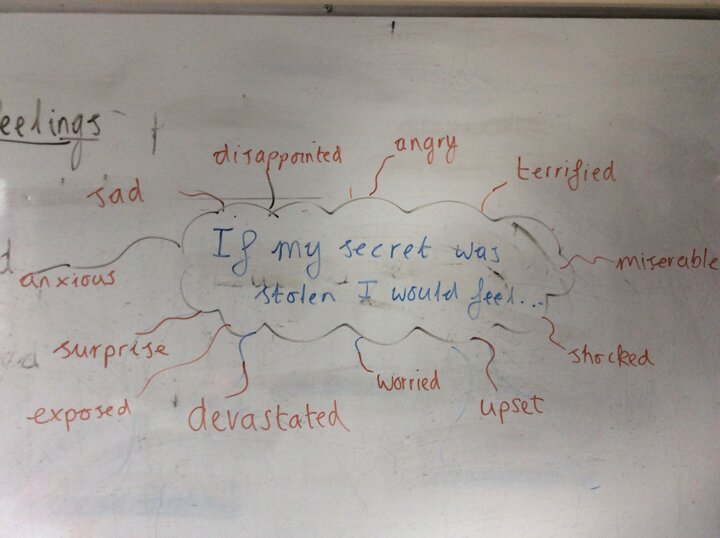 eelings
disappointed
angry
terrified
sad
If my secret was
stolen I would feel...
miserable
anxious
surprise
shocked
exposed
devastated
worried
upset